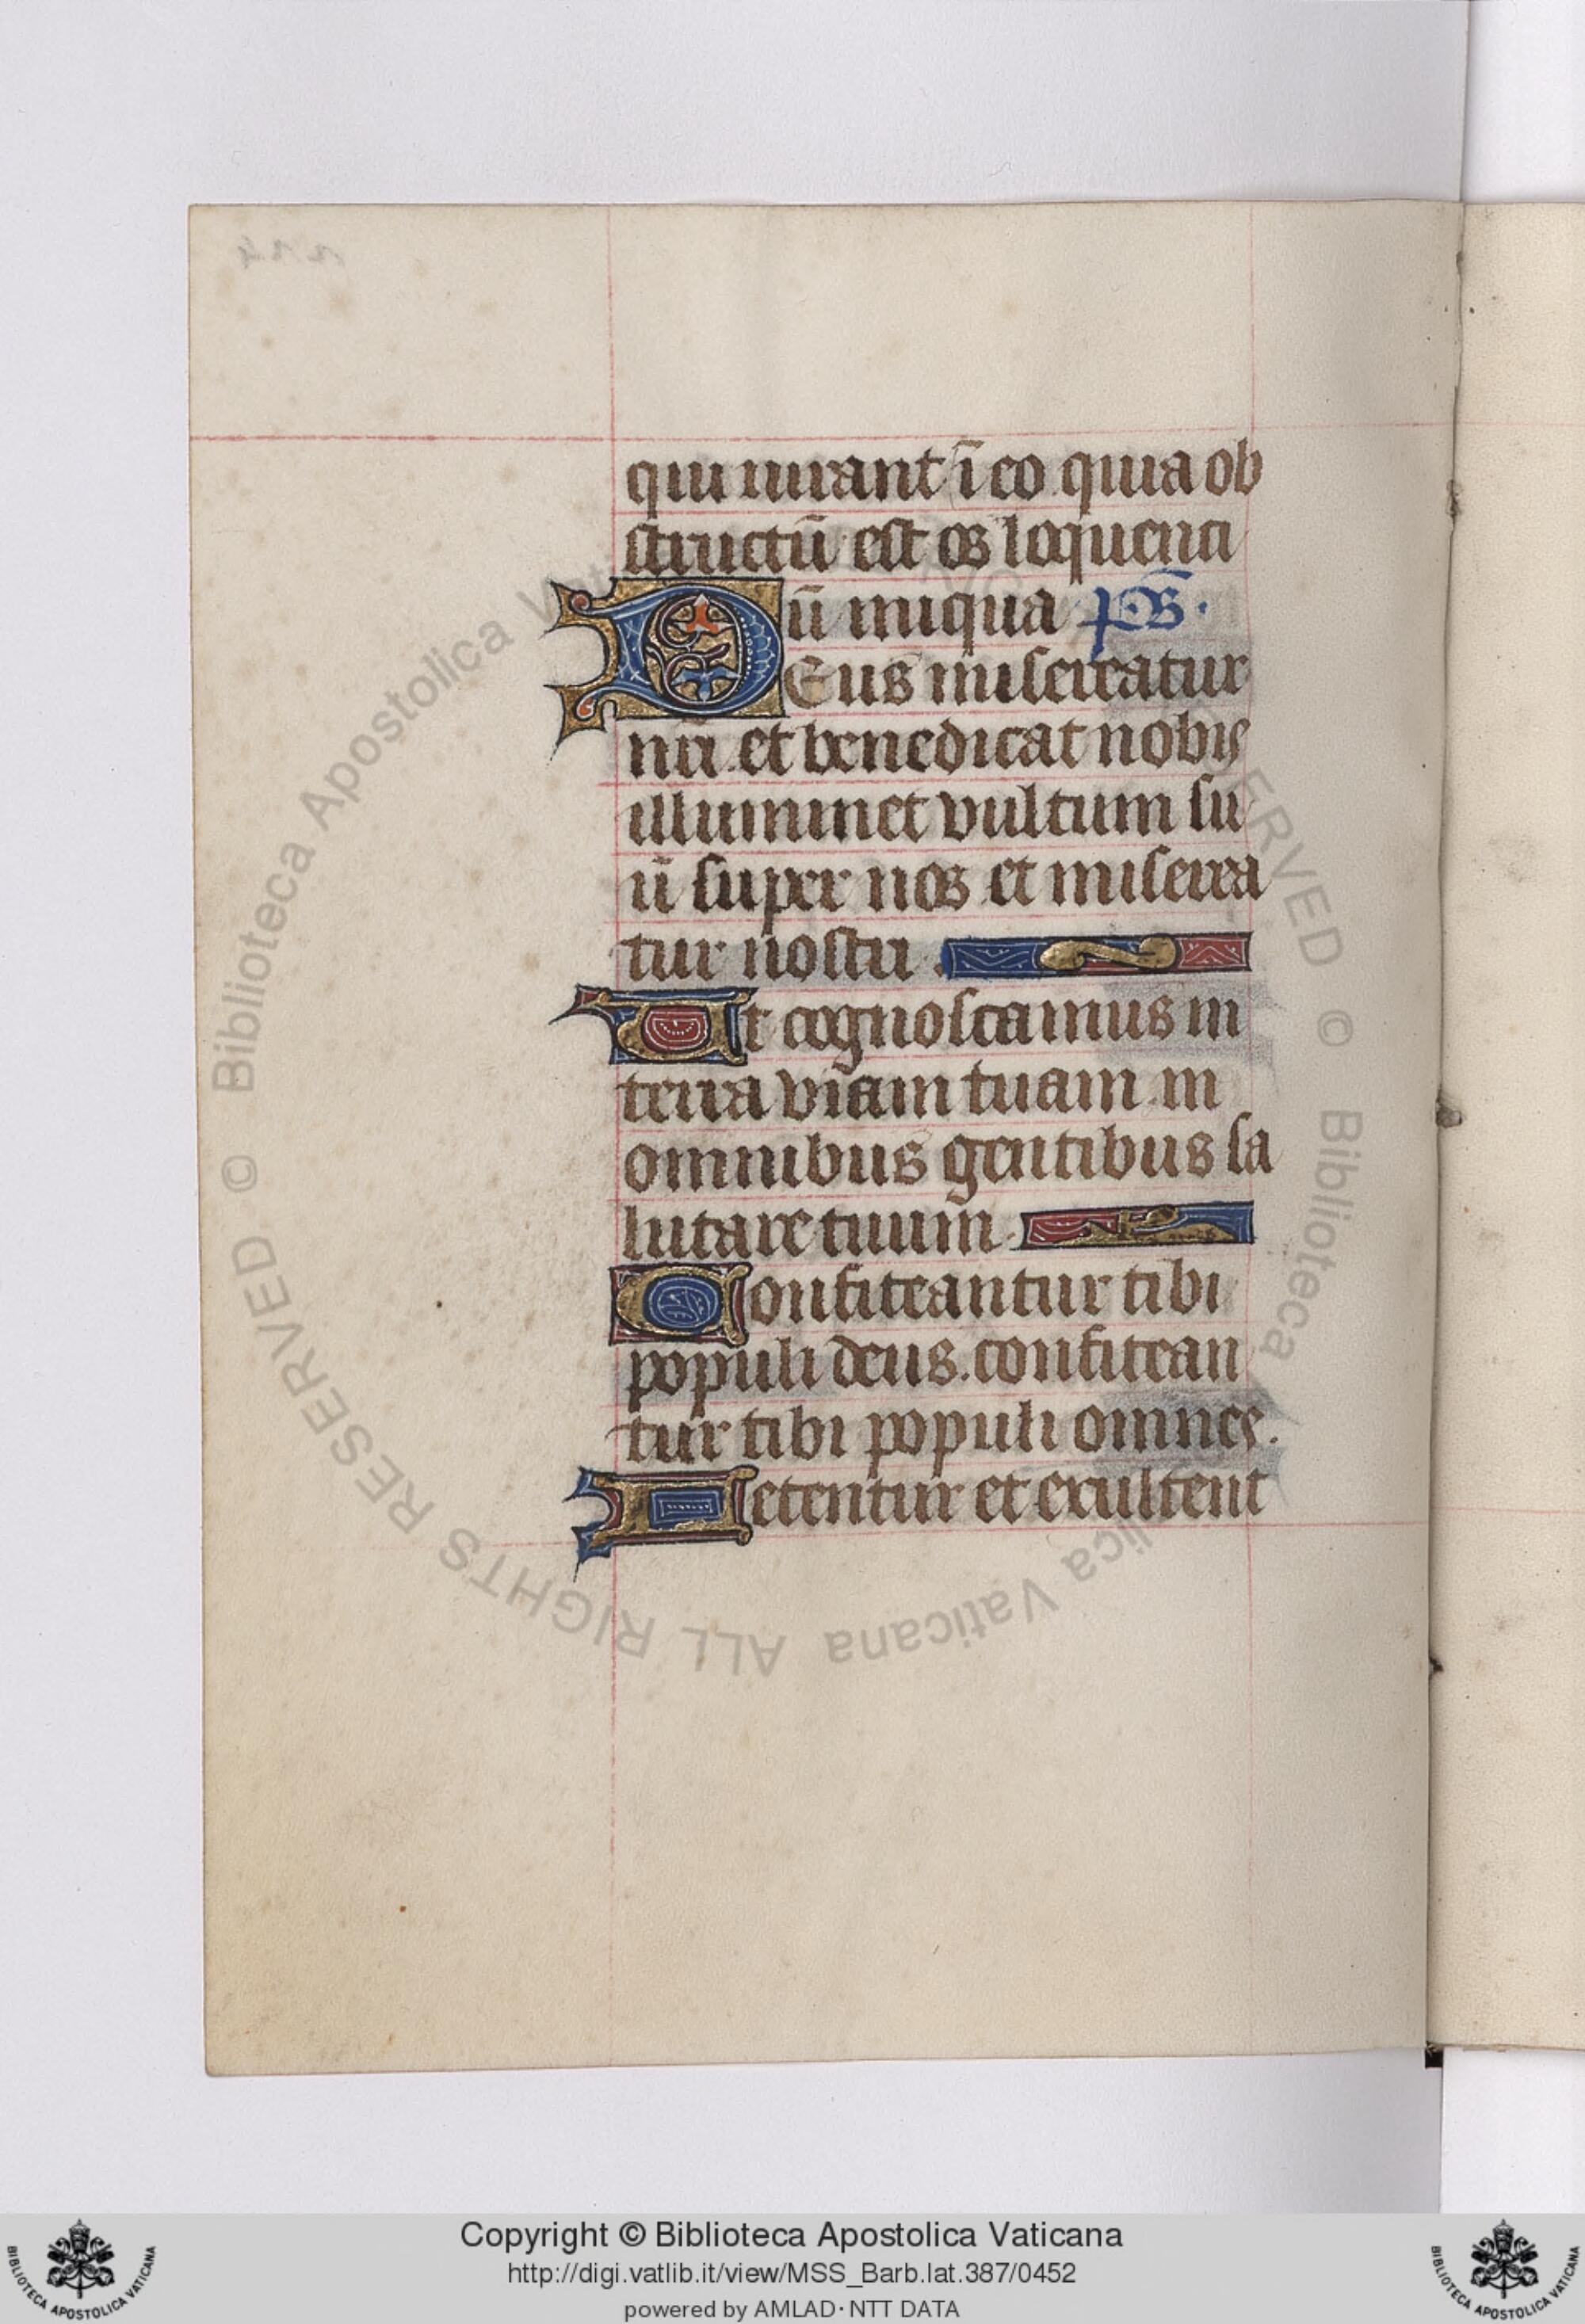 qui iurant ī eo quia ob
structū est os loquenti
ū iniqua ps̄.
Deus misereatur
nr̄i et benedicat nobis
illuminet vultum su
ū super nos et miserea
tur nostri.
Ut cognoscamus in
terra viam tuam in
omnibus gentibus sa
lutare tuum.
Confiteantur tibi
populi deus. confitean
tur tibi populi omnes.
Letentur et exultent
© Biblioteca Apostolica Vaticana ALL RIGHTS RESERVED
Copyright © Biblioteca Apostolica Vaticana
http://digi.vatlib.it/view/MSS_Barb.lat.387/0452
powered by AMLAD·NTT DATA
BIBLIOTECA APOSTOLICA VATICANA
BIBLIOTECA APOSTOLICA VATICANA